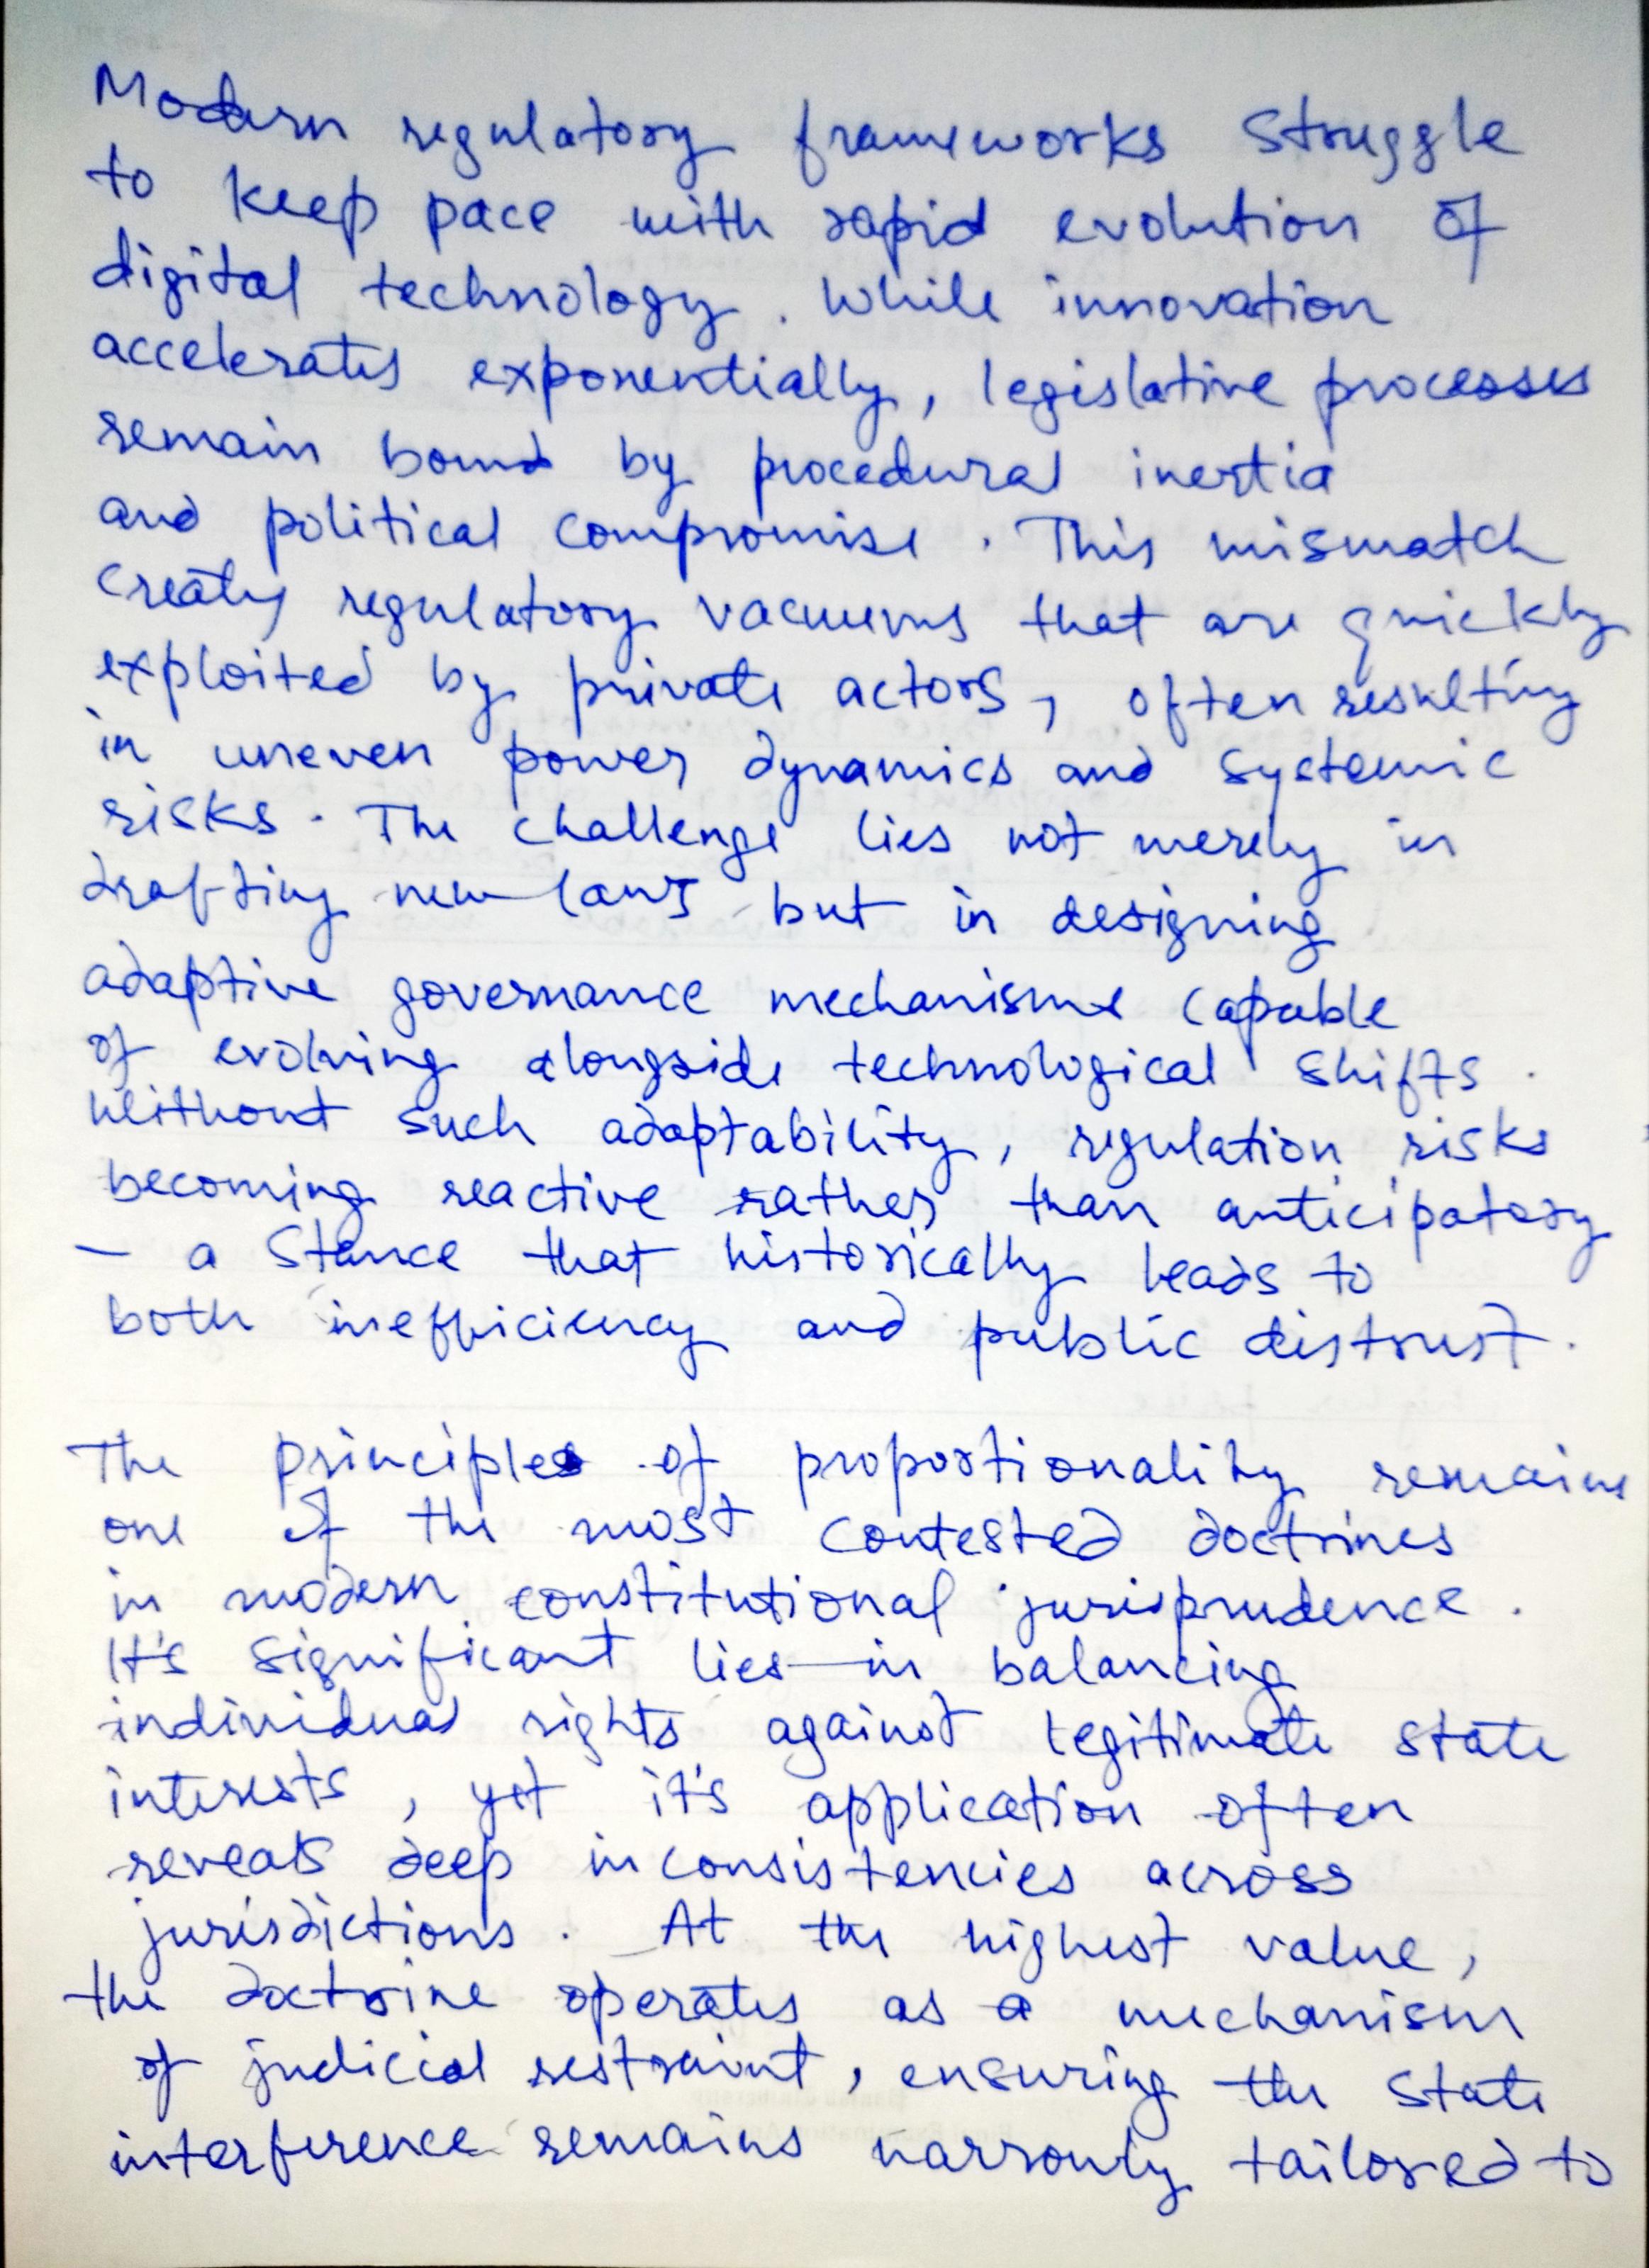 Modern regulatory frameworks struggle
to keep pace with rapid evolution of
digital technology. While innovation
accelerates exponentially, legislative processes
remain bound by procedural inertia
and political compromise. This mismatch
creates regulatory vacuums that are quickly
exploited by private actors, often resulting
in uneven power dynamics and systemic
risks. The challenge lies not merely in
drafting new laws but in designing
adaptive governance mechanisms capable
of evolving alongside technological shifts.
Without such adaptability, regulation risks
becoming reactive rather than anticipatory
— a stance that historically leads to
both inefficiency and public distrust.
The principles of proportionality remains
one of the most contested doctrines
in modern constitutional jurisprudence.
It's significant lies in balancing
individual rights against legitimate state
interests, yet it's application often
reveals deep inconsistencies across
jurisdictions. At the highest value,
the doctrine operates as a mechanism
of judicial restraint, ensuring the state
interference remains narrowly tailored to